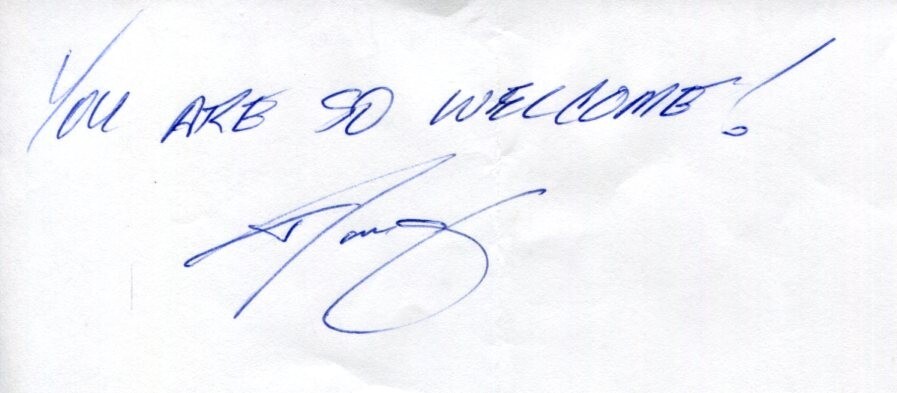 YOU ARE SO WELCOME!